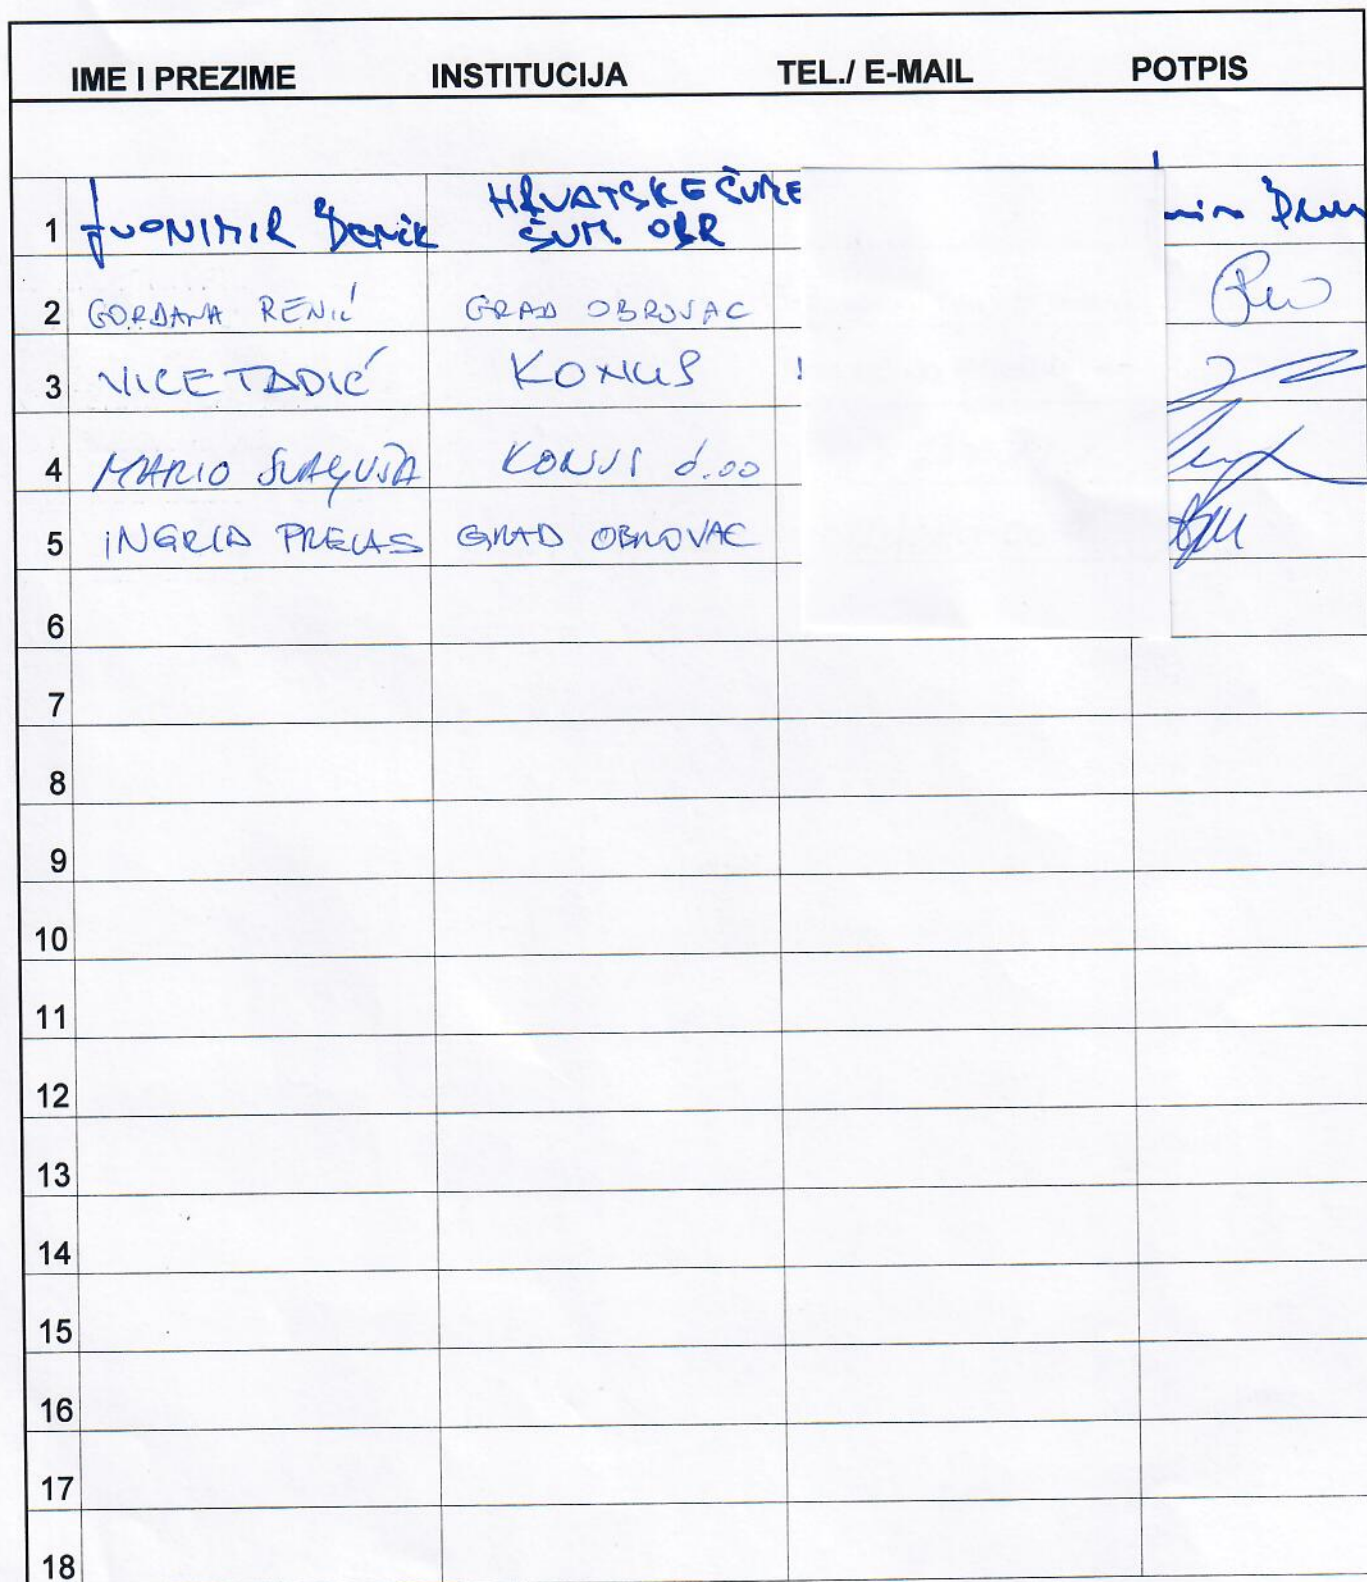 IME I PREZIME INSTITUCIJA TEL./ E-MAIL POTPIS
HRVATSKE ŠUME
1 ŠUM. OBR
2 GORDANA RENIĆ GRAD OBROVAC
3 NICE TADIĆ KONUS
4 MARIO KONUS d.oo
5 INGRID PRELAS GRAD OBROVAC
6
7
8
9
10
11
12
13
14
15
16
17
18